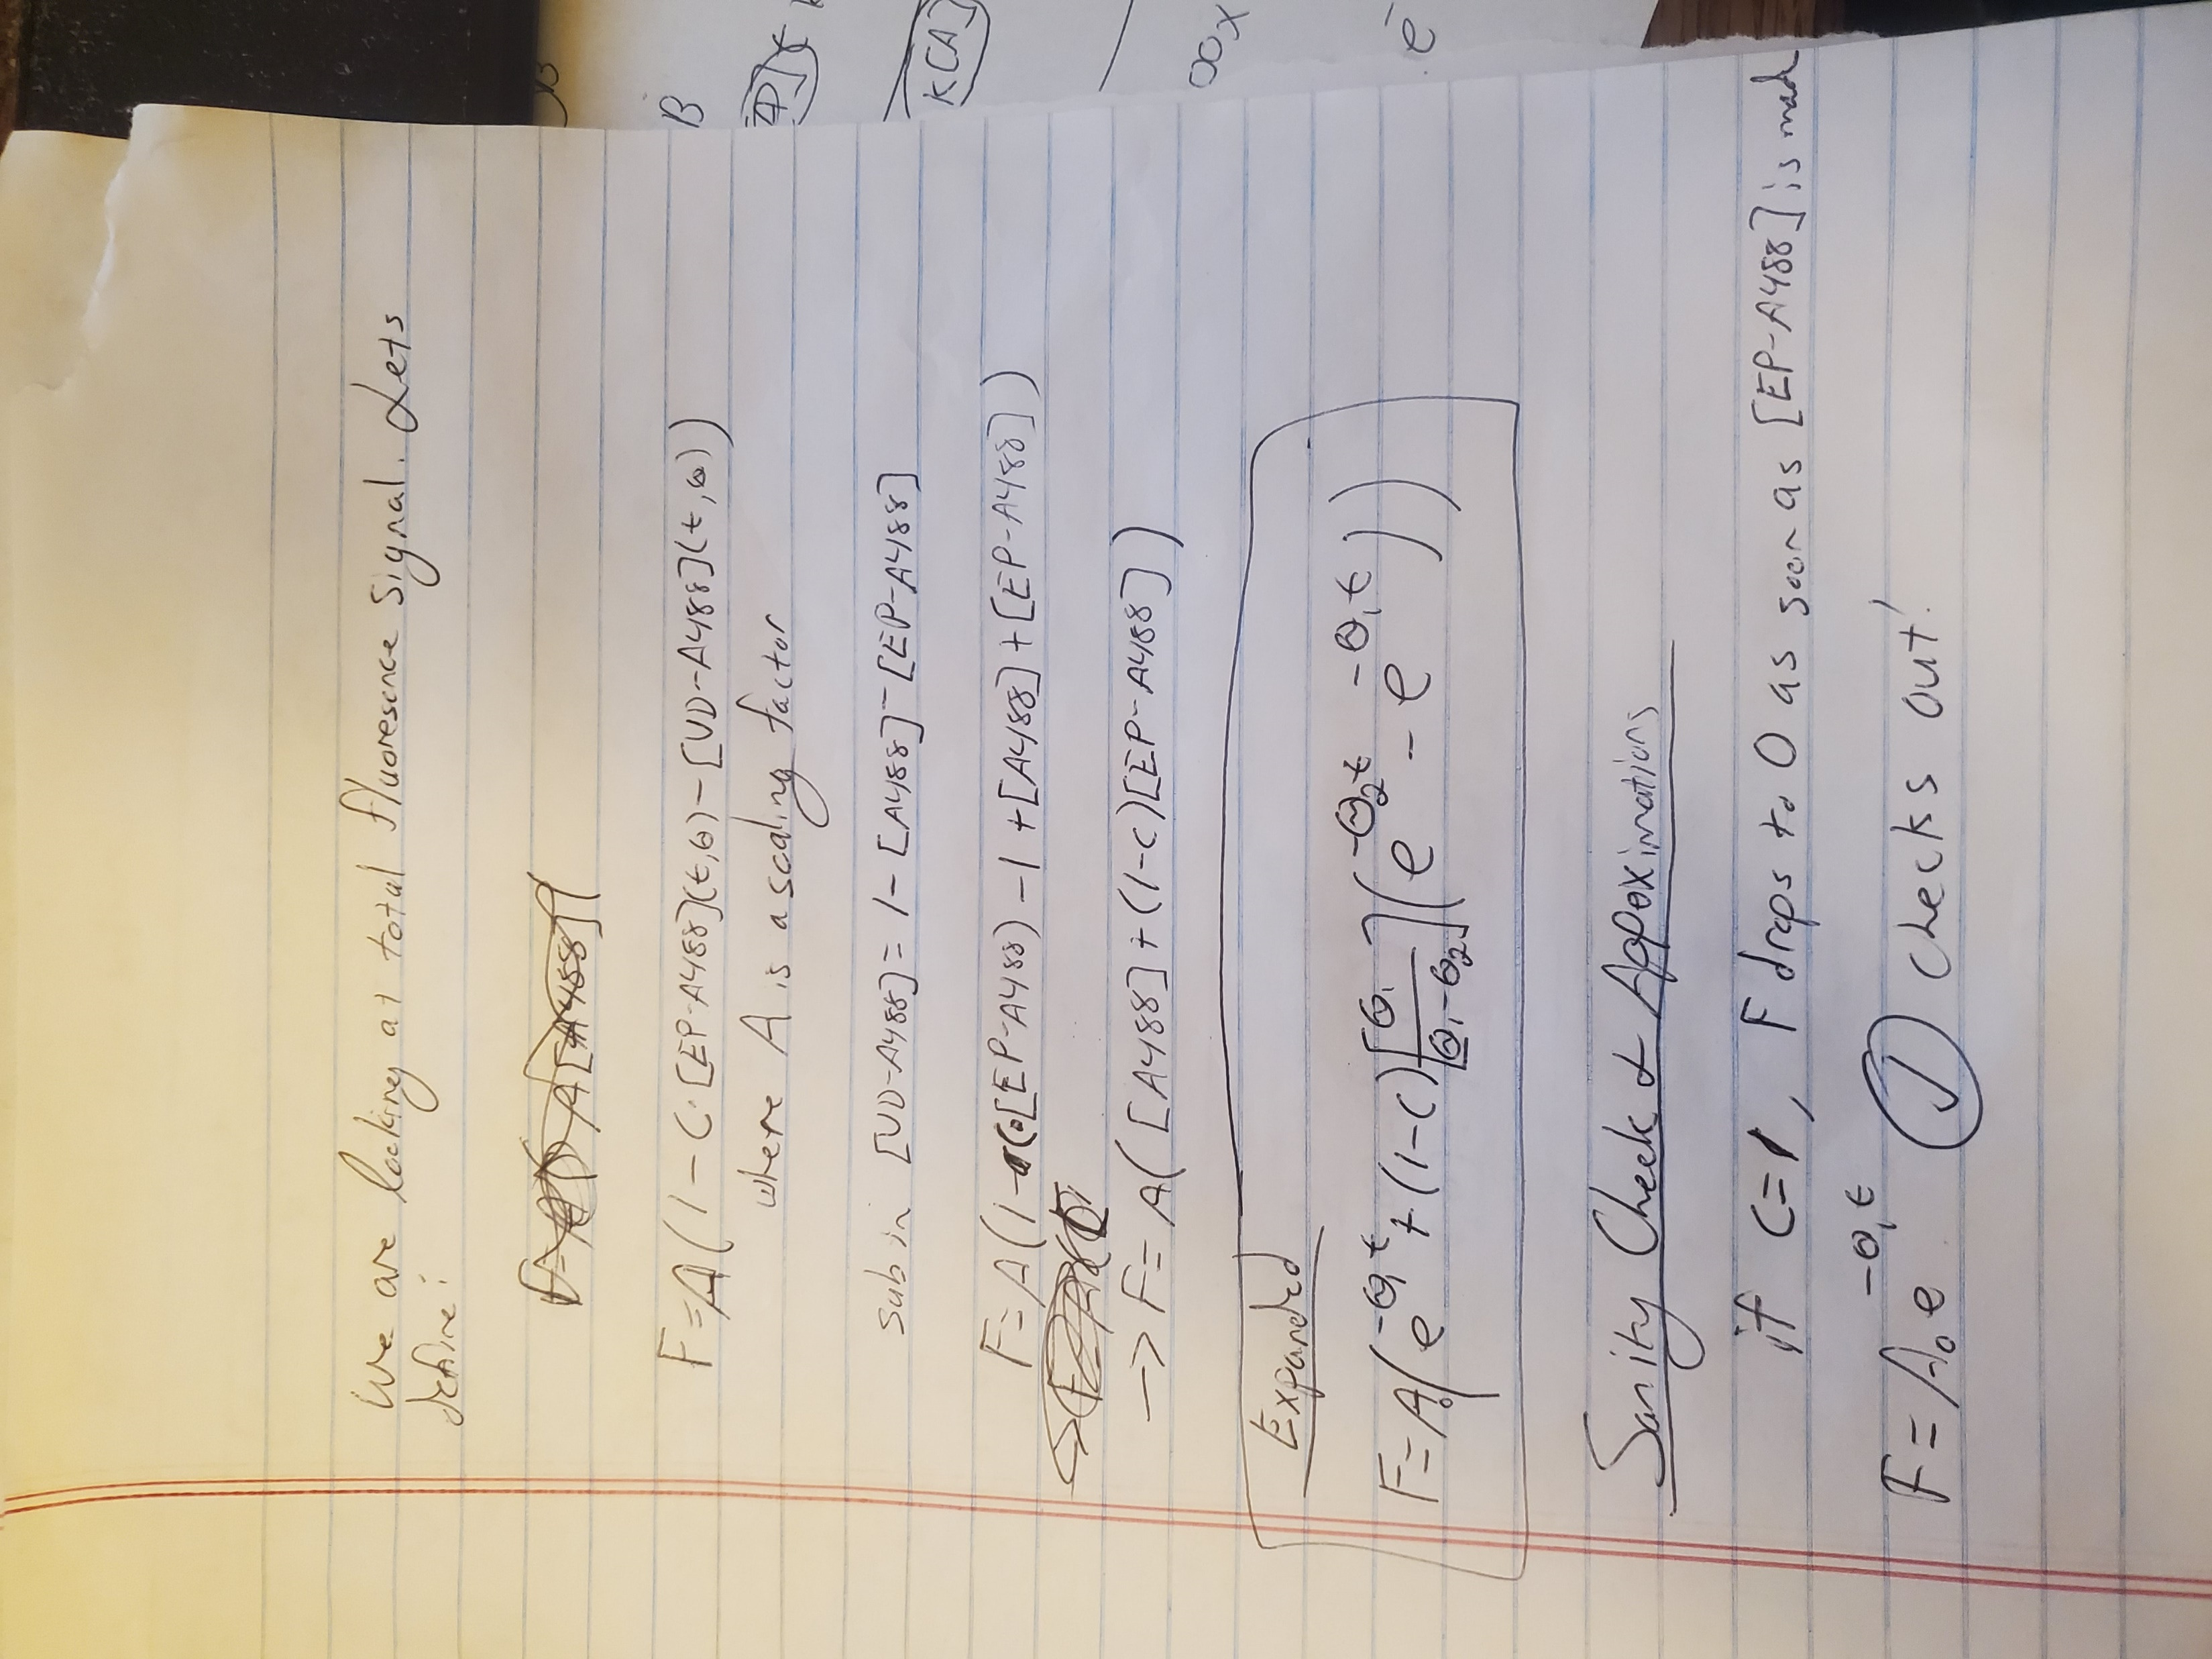 We are looking at total fluoresence signal. Lets
define:
F=A(1-C·[EP-A488](t,θ)-[UD-A488](t,θ))
where A is a scaling factor
sub in [UD-A488]=1-[A488]-[EP-A488]
F=A(1-C·[EP-A488)-1+[A488]+[EP-A488])
→ F=A([A488]+(1-C)[EP-A488])
Expanded
F=A₀(e^{-θ₁t}+(1-C)[θ₁/(θ₁-θ₂)](e^{-θ₂t}-e^{-θ₁t}))
Sanity Check & Approximations
if C=1, F drops to 0 as soon as [EP-A488] is mad
F=A₀e^{-θ₁t} ✓ checks out!
B
K[A]
e⁻